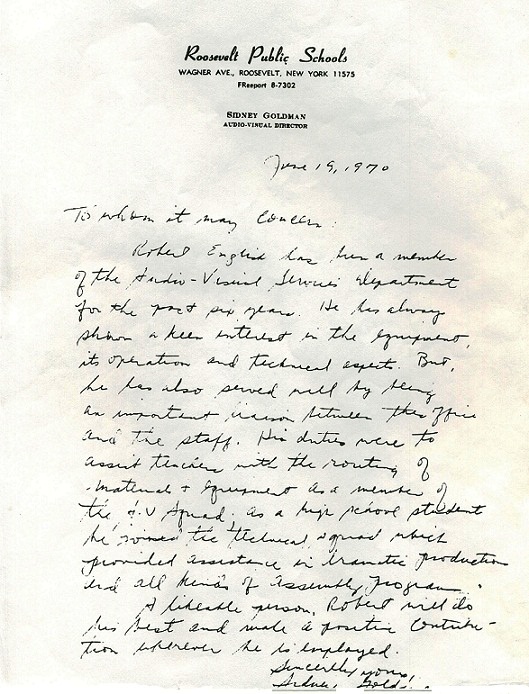 Roosevelt Public Schools
WAGNER AVE., ROOSEVELT, NEW YORK 11575
FReeport 8-7302
SIDNEY GOLDMAN
AUDIO-VISUAL DIRECTOR
June 19, 1970
To whom it may concern:
Robert English has been a member
of the Audio-Visual Services Department
for the past six years. He has always
shown a keen interest in the equipment,
its operation and technical aspects. But,
he has also served well by being
an important liaison between this office
and the staff. His duties were to
assist teachers with the routing of
materials + equipment as a member of
the A.V Squad. As a high school student
he joined the technical squad which
provided assistance in dramatic production
and all kinds of assembly programs.
A likeable person, Robert will do
his best and make a positive contribu-
tion wherever he is employed.
Sincerely yours,
Sidney Gold